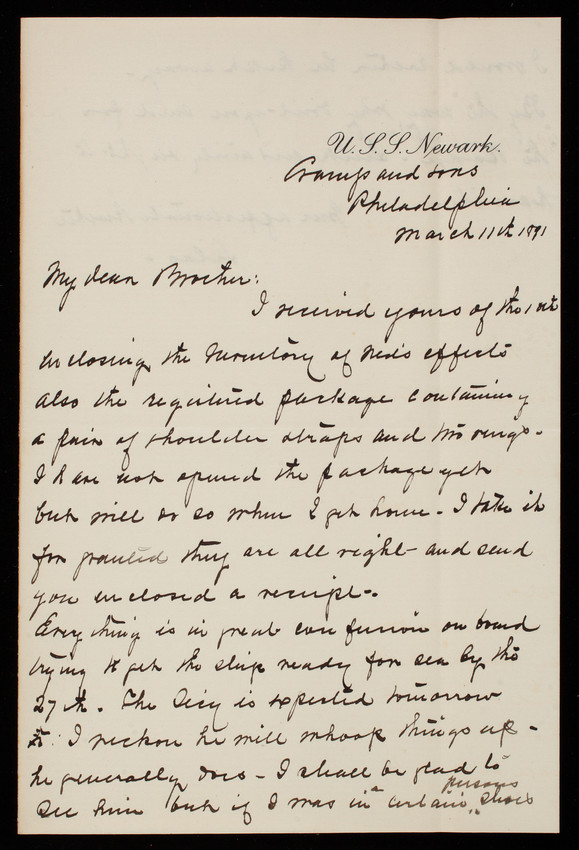 U.S.S. Newark.
Cramps and Sons
Philadelphia
March 11th 1891
My dear Brother:
I received yours of the inst
enclosing the Inventory of Neds effects
also the registered package containing
a pair of shoulder straps and two rings.
I have not opened the package yet
but will do so when I get home - I take it
for granted they are all right - and send
you enclosed a receipt.
Everything is in great confusion on board
trying to get the ship ready for sea by the
27th. The Secy is expected tomorrow
I reckon he will whoop things up -
he generally does - I shall be glad to
see him but if I was in a certain persons shoes